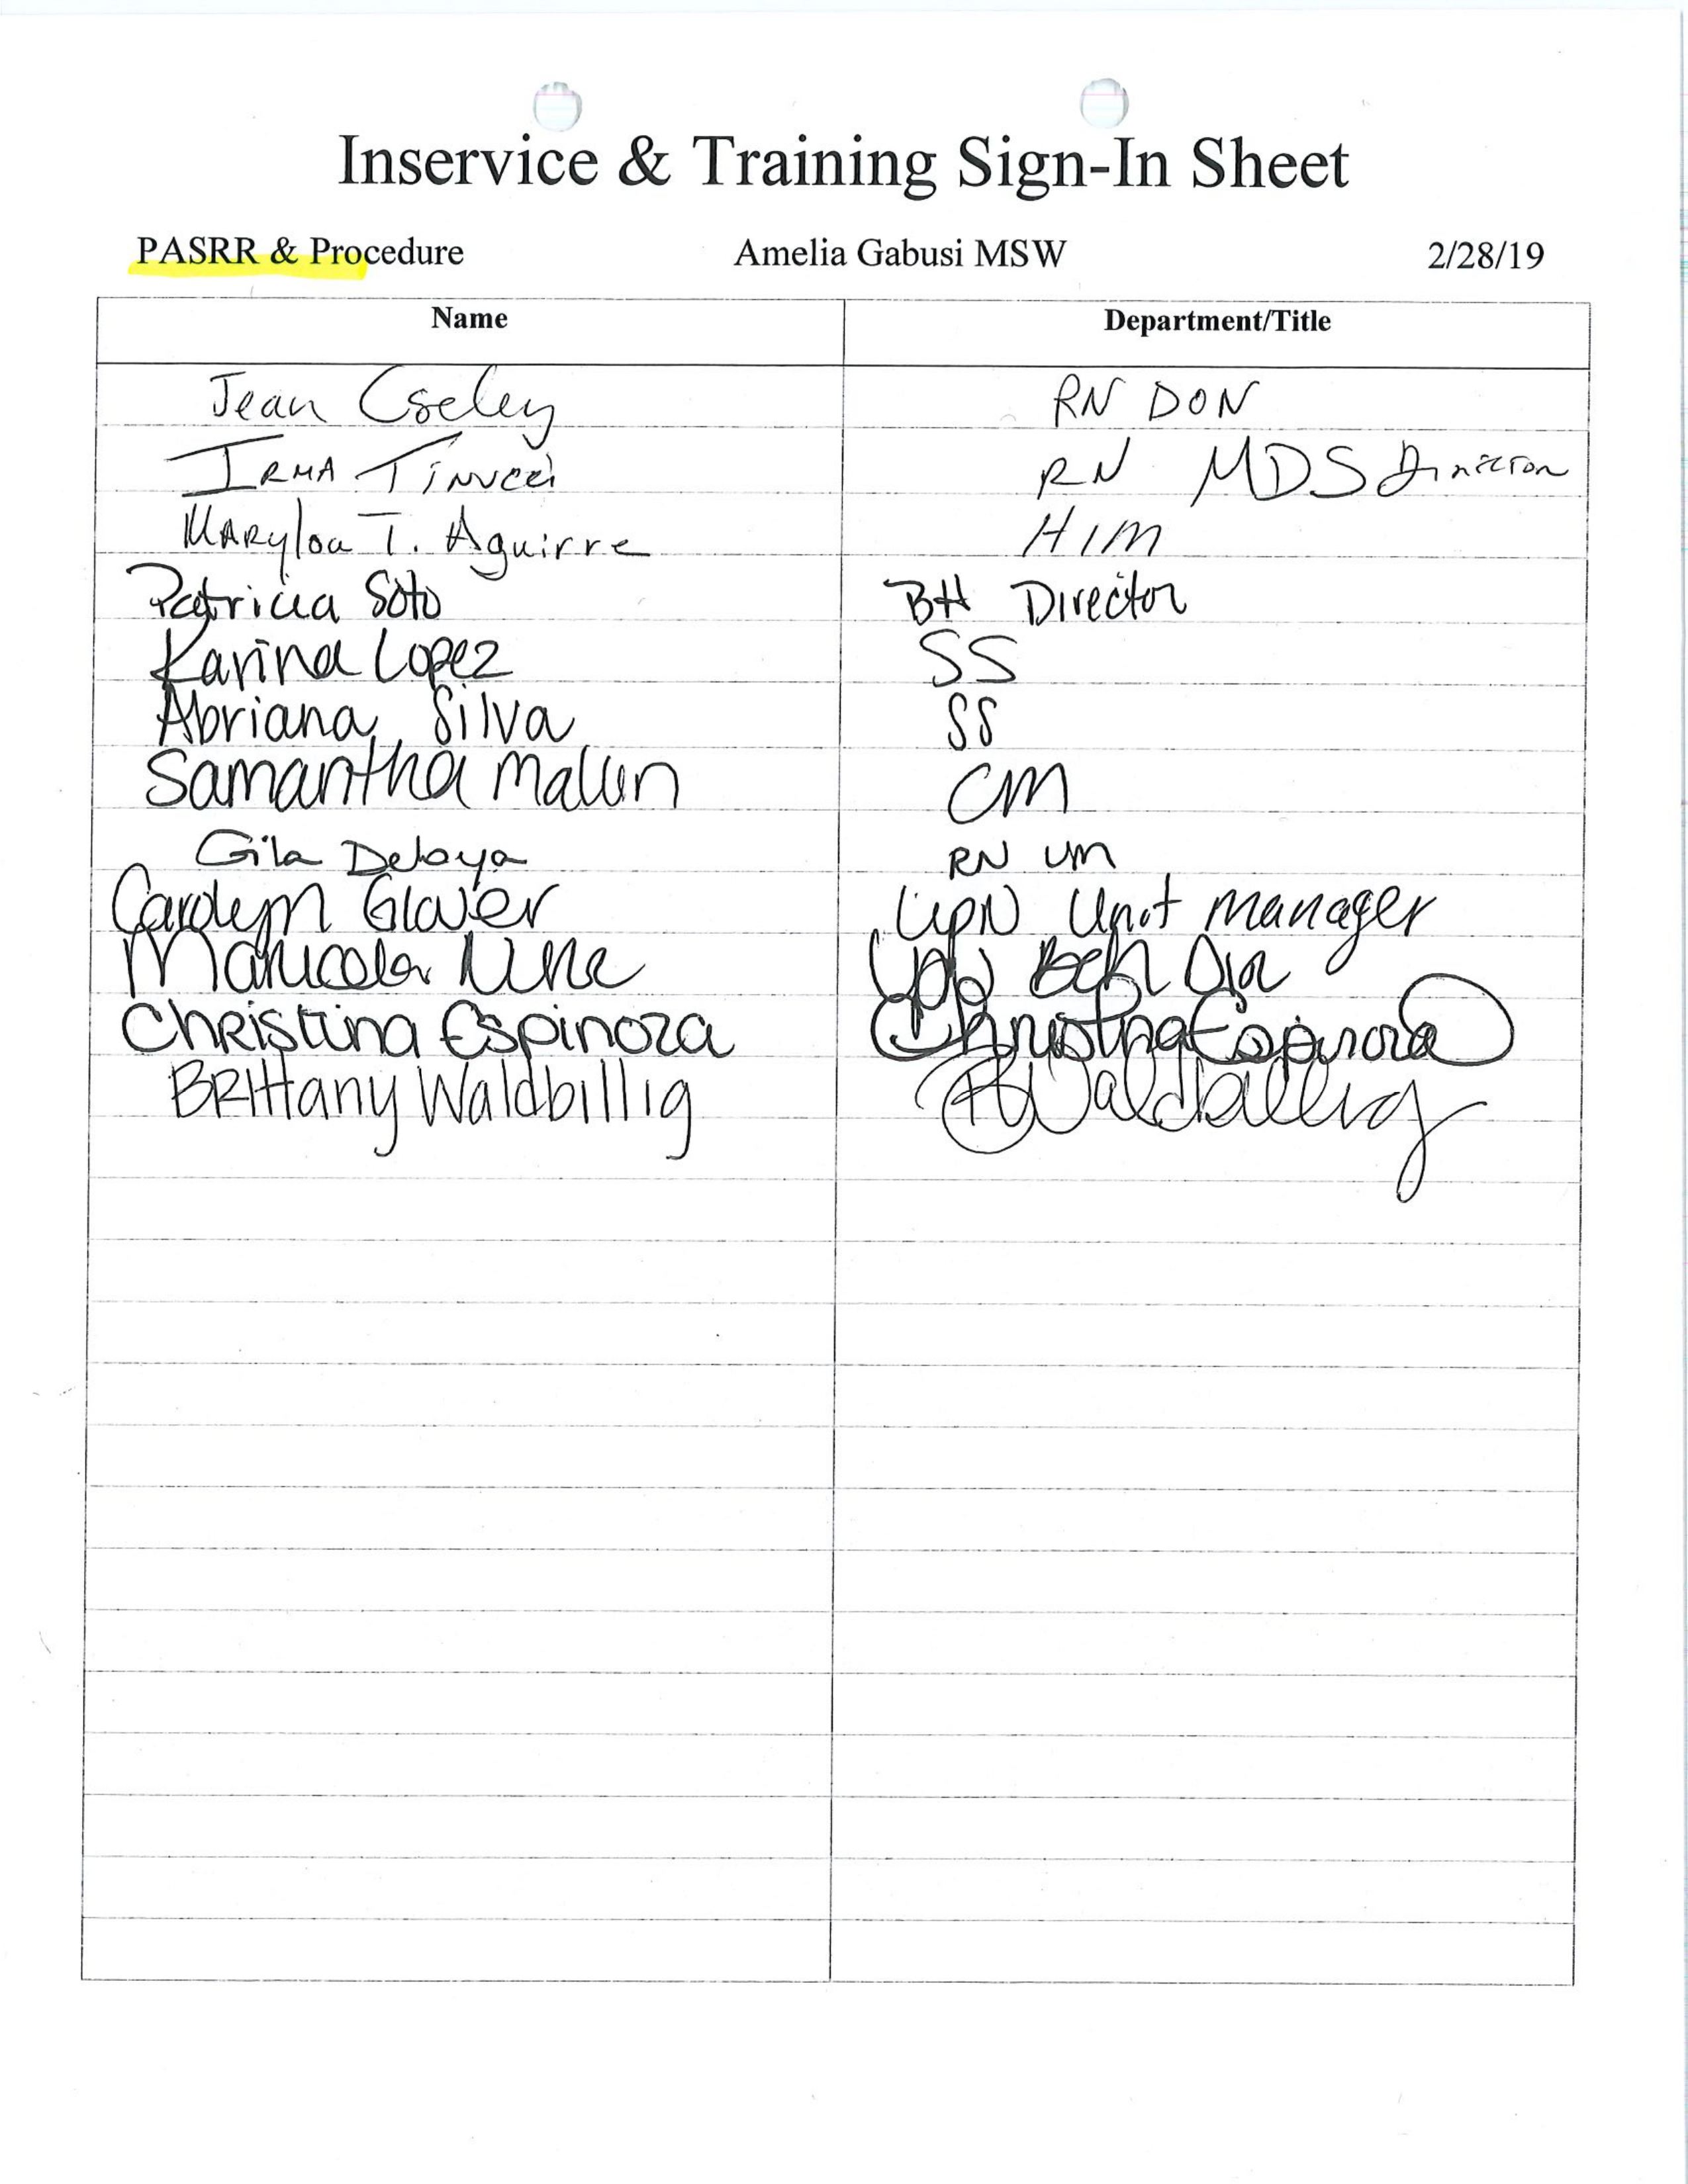 Inservice & Training Sign-In Sheet
PASRR & Procedure Amelia Gabusi MSW 2/28/19
Name Department/Title
Jean Cseley RN DON
IRMA Tinucci RN MDS Director
Marylou T. Aguirre HIM
Patricia Soto BH Director
Karina Lopez SS
Abriana Silva SS
Samantha SS CM
Gila Deloya RN UM
Carolyn Glover LPN Unit Manager
LPN
Christina Espinoza Christina Espinoza
BRIttany Waldbillig BWaldbillig